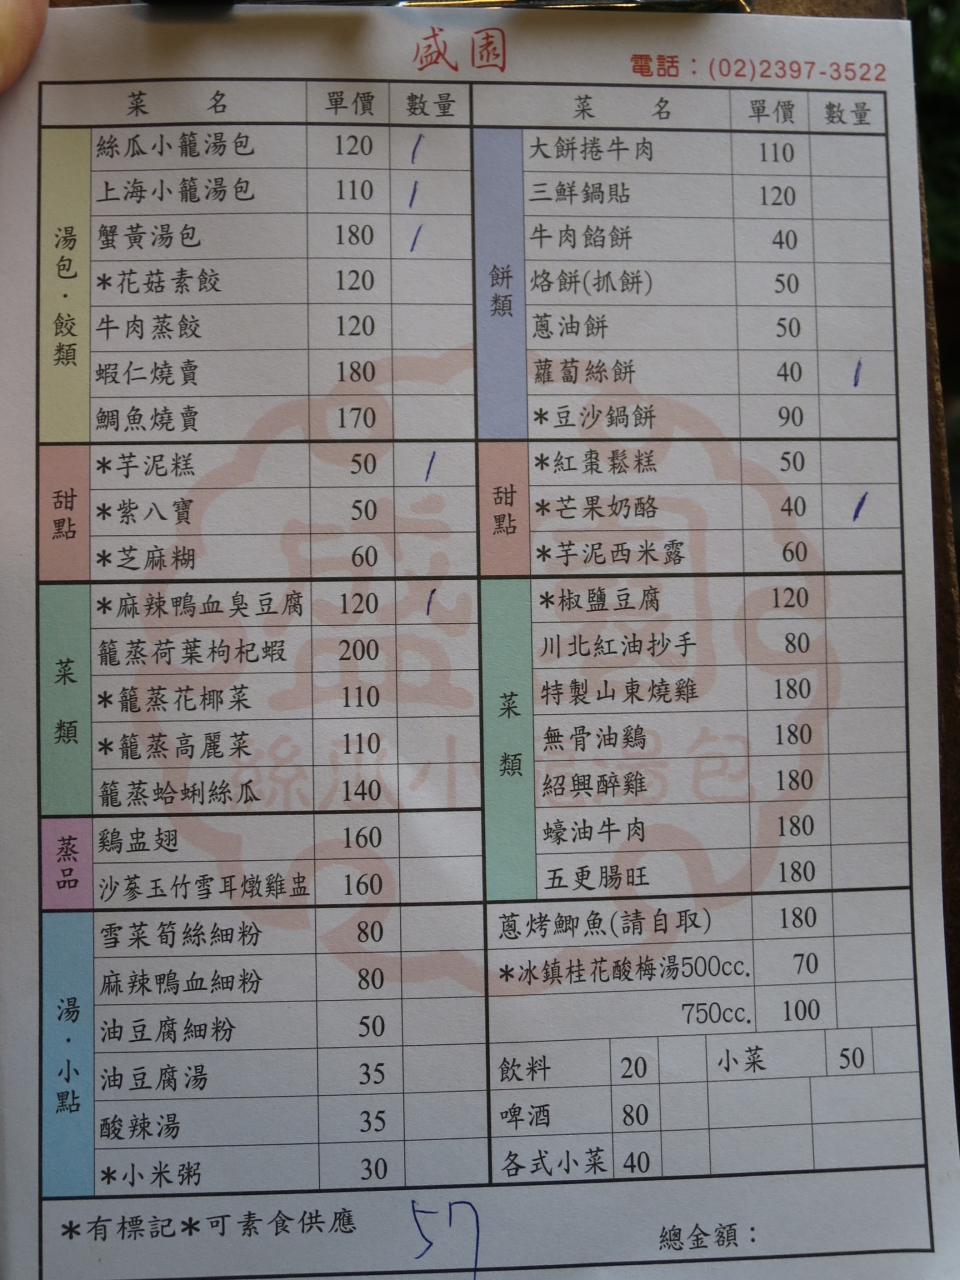 盛園
電話：(02)2397-3522
菜名 單價 數量 菜名 單價 數量
湯包·餃類
絲瓜小籠湯包 120 /
上海小籠湯包 110 /
蟹黃湯包 180 /
*花菇素餃 120
牛肉蒸餃 120
蝦仁燒賣 180
鯛魚燒賣 170
餅類
大餅捲牛肉 110
三鮮鍋貼 120
牛肉餡餅 40
烙餅(抓餅) 50
蔥油餅 50
蘿蔔絲餅 40 /
*豆沙鍋餅 90
甜點
*芋泥糕 50 /
*紫八寶 50
*芝麻糊 60
甜點
*紅棗鬆糕 50
*芒果奶酪 40 /
*芋泥西米露 60
菜類
*麻辣鴨血臭豆腐 120 /
籠蒸荷葉枸杞蝦 200
*籠蒸花椰菜 110
*籠蒸高麗菜 110
籠蒸蛤蜊絲瓜 140
菜類
*椒鹽豆腐 120
川北紅油抄手 80
特製山東燒雞 180
無骨油鷄 180
紹興醉雞 180
蠔油牛肉 180
五更腸旺 180
蒸品
鷄盅翅 160
沙蔘玉竹雪耳燉雞盅 160
湯·小點
雪菜筍絲細粉 80
麻辣鴨血細粉 80
油豆腐細粉 50
油豆腐湯 35
酸辣湯 35
*小米粥 30
蔥烤鯽魚(請自取) 180
*冰鎮桂花酸梅湯500cc. 70
750cc. 100
飲料 20 小菜 50
啤酒 80
各式小菜 40
*有標記*可素食供應 57 總金額：
盛園
絲瓜小籠湯包